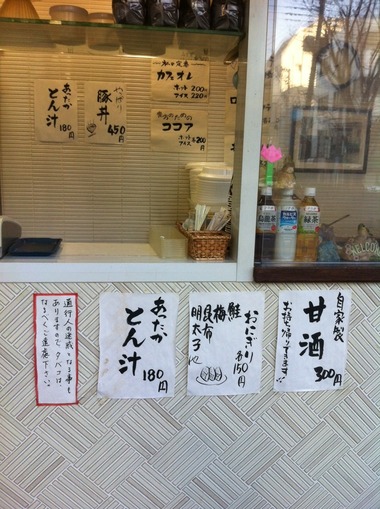 あったか
とん汁
180円
やっぱり
豚丼
450円
私の定番
カフェオレ
ホット 200円
アイス 220円
ココア
ホット ¥200
アイス 円
烏龍茶
緑茶
WELCOME
通行人の迷惑になる事も
ありますので、タバコは
なるべくご遠慮下さい。
あったか
とん汁
180円
おにぎり
各150円
鮭
梅
昆布
明太子
自家製
甘酒
お持ち帰りできます!
300円